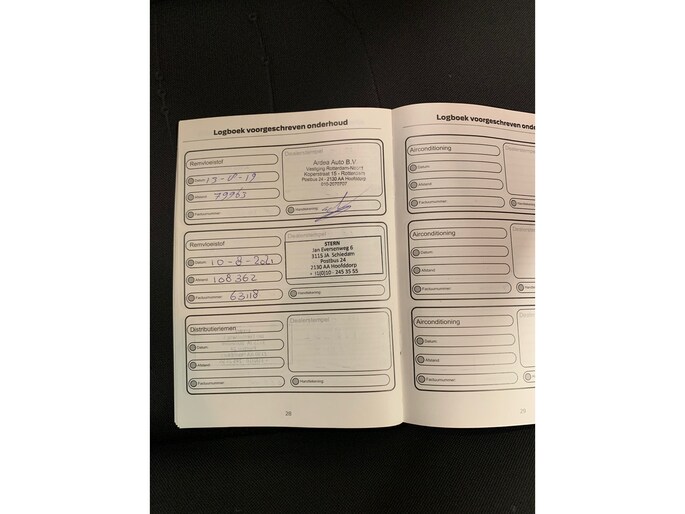 Logboek voorgeschreven onderhoud
Remvloeistof
Dealerstempel
Datum 13-8-19
Afstand 79963
Factuurnummer
Ardea Auto B.V.
Vestiging Rotterdam-Noord
Koperstraat 15 - Rotterdam
Postbus 24 - 2130 AA Hoofddorp
Handtekening
Remvloeistof
Dealerstempel
Datum 10-8-2021
Afstand 108362
Factuurnummer 63118
STERN
Jan Evertsenweg 6
3115 JA Schiedam
Postbus 24
2130 AA Hoofddorp
+ 31(0)10 - 245 35 55
Handtekening
Distributieriemen
Dealerstempel
Datum
Afstand
Factuurnummer
Handtekening
28
Logboek voorgeschreven onde
Airconditioning
Dealerst
Datum
Afstand
Factuurnummer
Handte
Airconditioning
Dealerst
Datum
Afstand
Factuurnummer
Handte
Airconditioning
Dealerst
Datum
Afstand
Factuurnummer
Hand
29